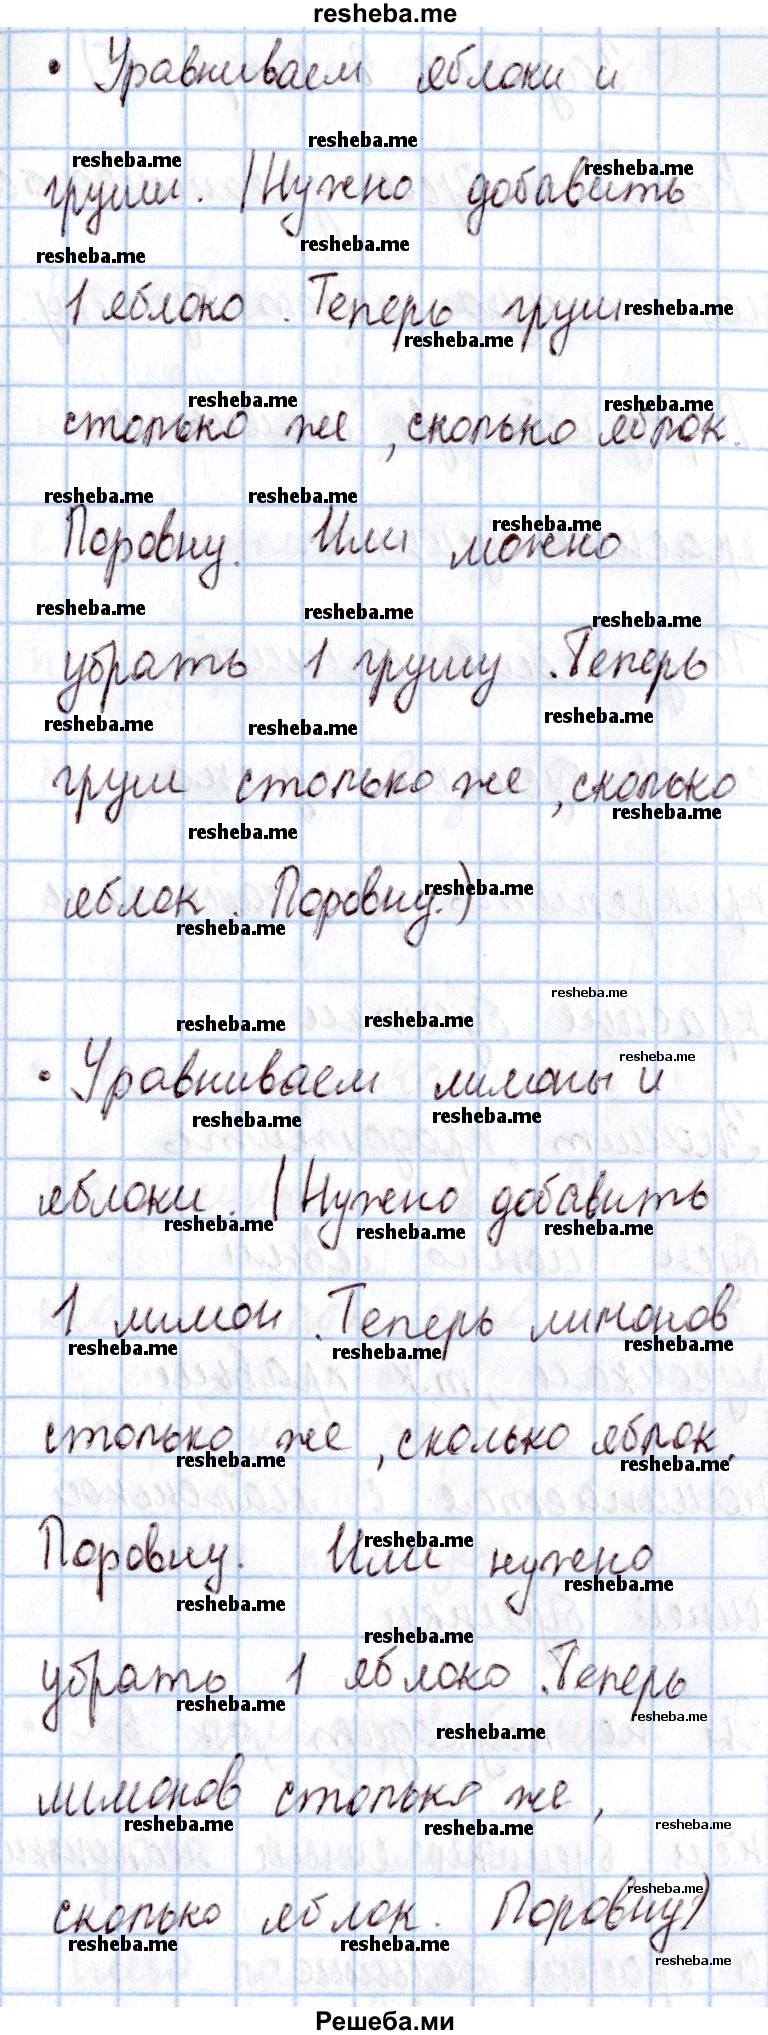 resheba.me
• Уравниваем яблоки и
resheba.me
resheba.me resheba.me
груши. (Нужно добавить
resheba.me resheba.me
1 яблоко. Теперь груш resheba.me
resheba.me
resheba.me resheba.me
столько же, сколько яблок.
resheba.me resheba.me resheba.me
Поровну. Или можно
resheba.me resheba.me resheba.me
убрать 1 грушу. Теперь
resheba.me resheba.me resheba.me
груш столько же, сколько
resheba.me resheba.me
яблок. Поровну.) resheba.me
resheba.me
resheba.me
resheba.me resheba.me
resheba.me
• Уравниваем лимоны и
resheba.me resheba.me
яблоки. (Нужно добавить
resheba.me resheba.me resheba.me
1 лимон. Теперь лимонов
resheba.me resheba.me resheba.me
столько же, сколько яблок.
resheba.me resheba.me
resheba.me
Поровну. Или нужно
resheba.me resheba.me
resheba.me
убрать 1 яблоко. Теперь
resheba.me resheba.me resheba.me
лимонов столько же,
resheba.me resheba.me resheba.me
resheba.me
сколько яблок. Поровну)
resheba.me resheba.me resheba.me
Решеба.ми